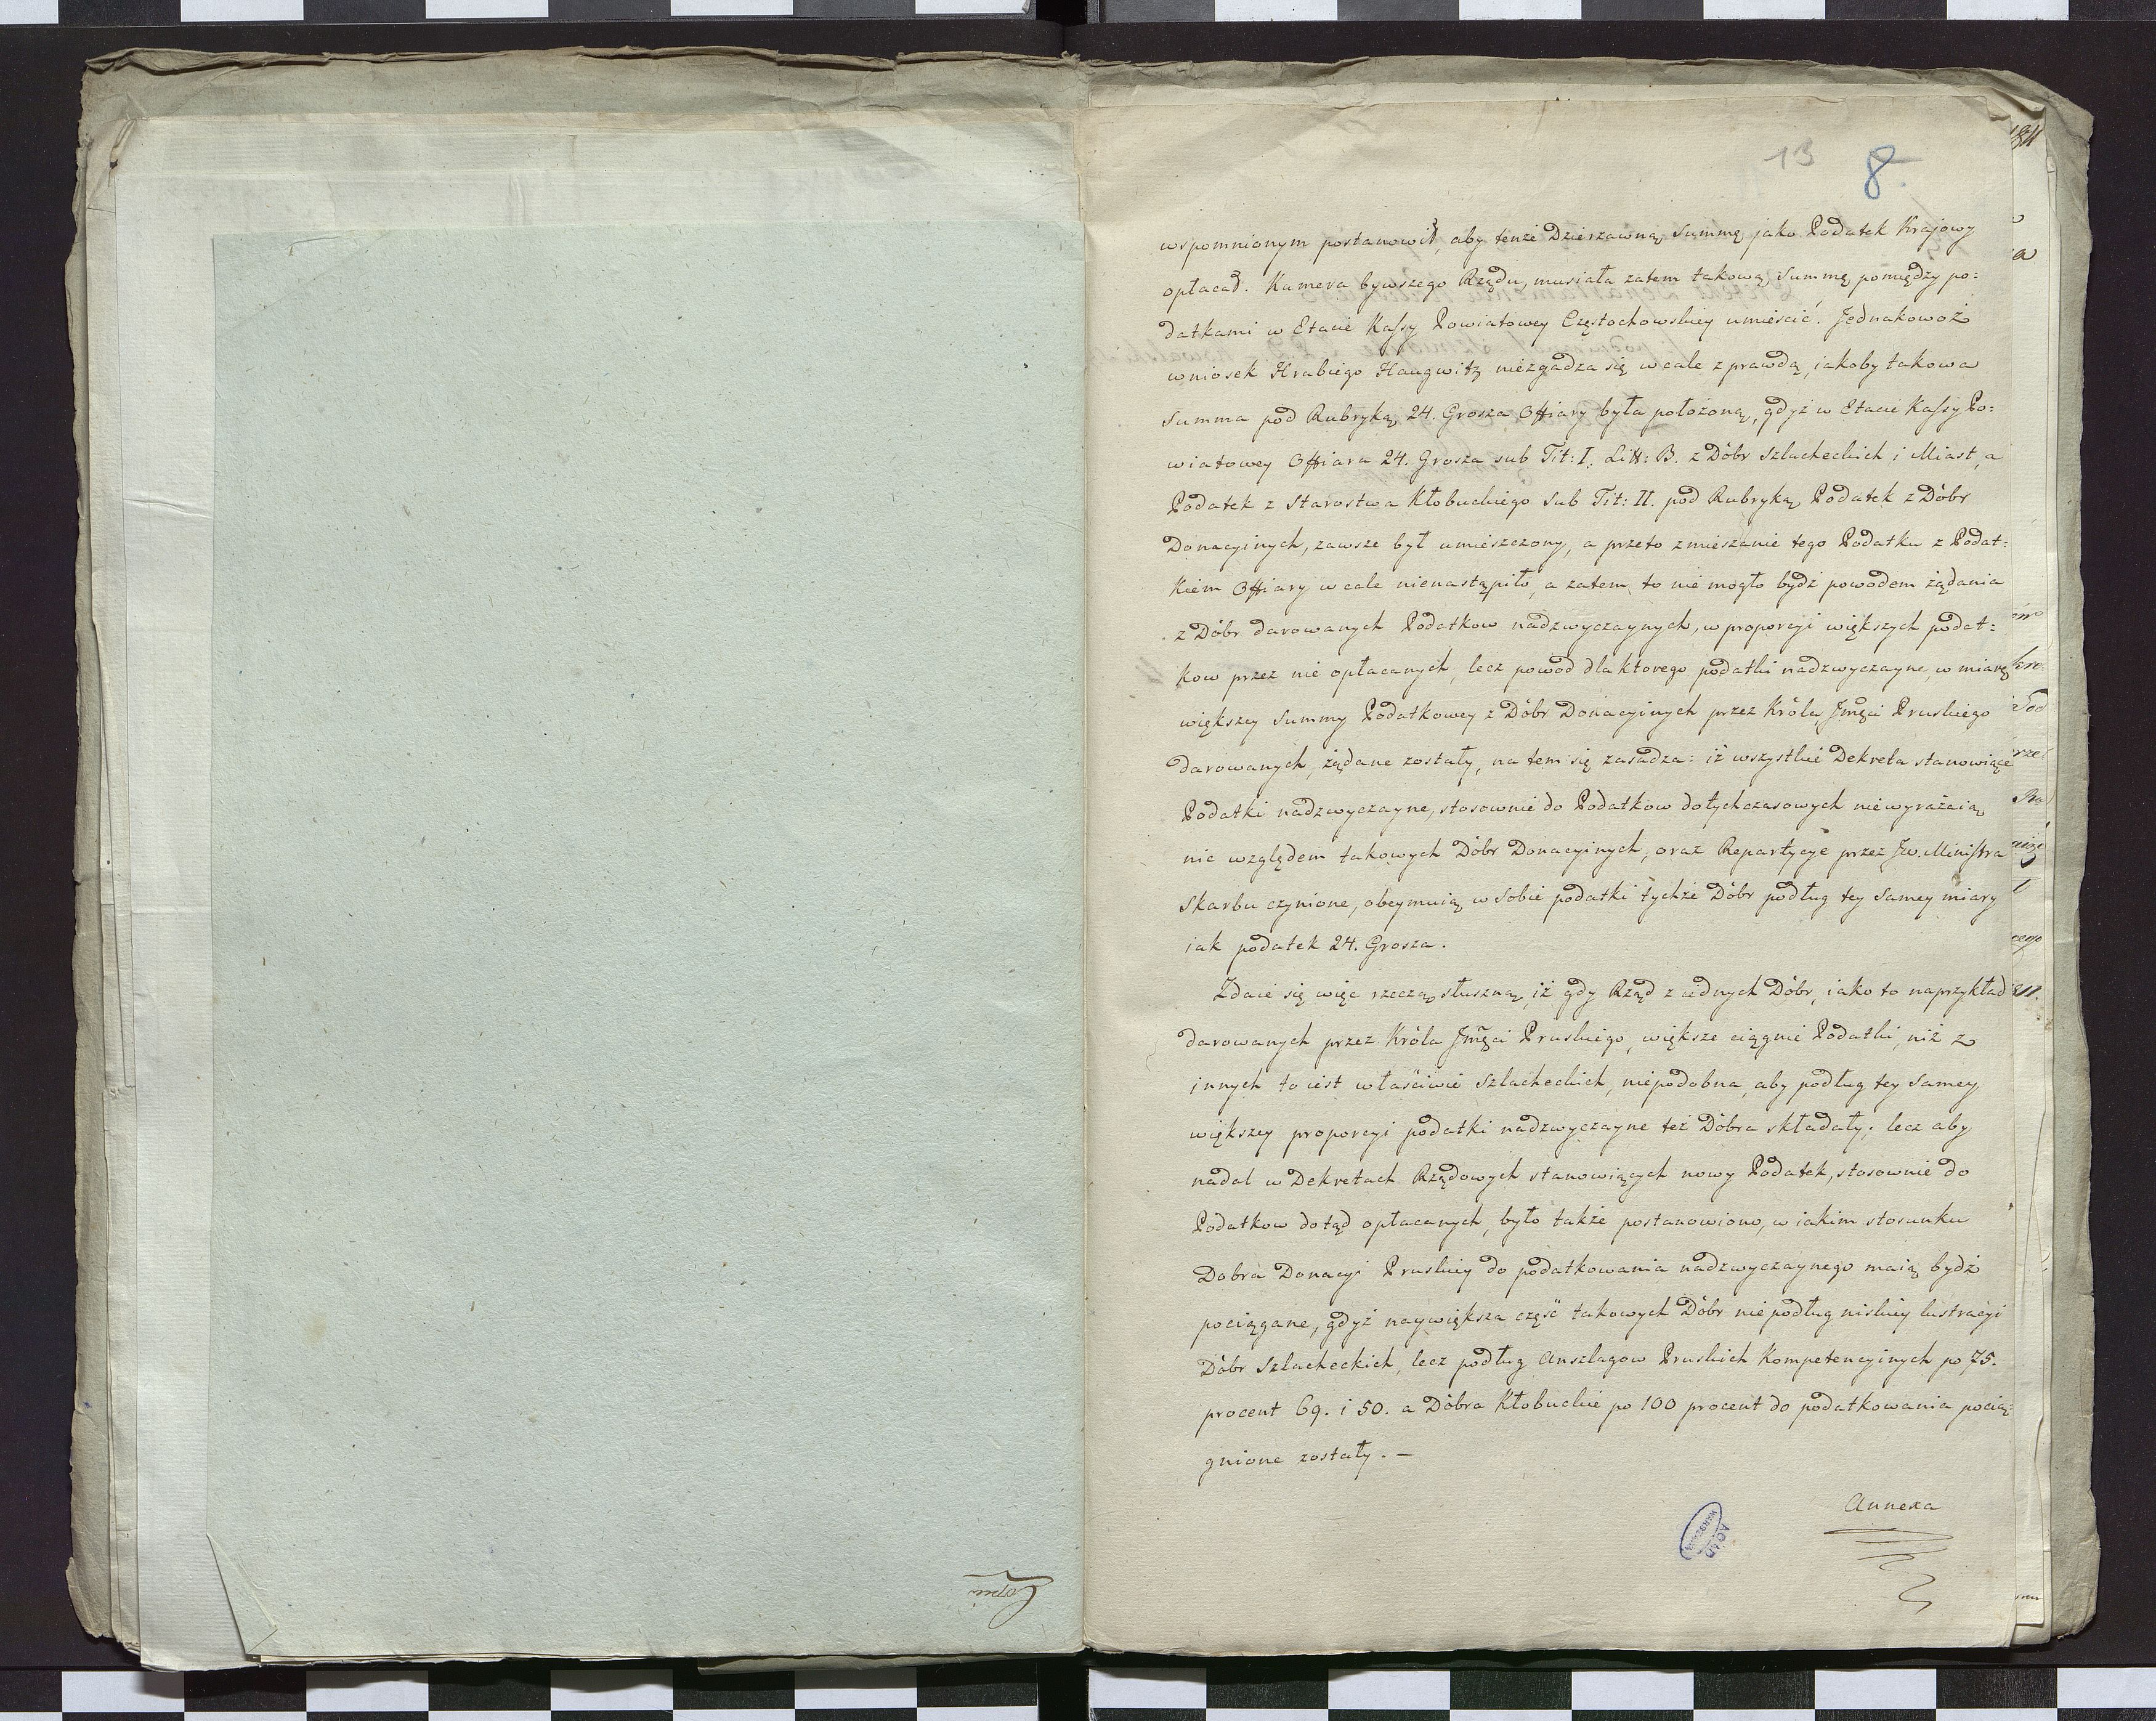 13 8.
wspomnionym postanowił, aby tenże Dzierzawną Summę jako Podatek Krajowy
opłacał. Kamera bywszego Rządu, musiała zatem takową Summę pomiędzy po:
datkami w Etacie Kassy Powiatowey Częstochowskiey umieścić. Jednakowoż
wniosek Hrabiego Haugwitz niezgadza się wcale z prawdą, iakoby takowa
Summa pod Rubryką 24. Grosza Offiary była położoną, gdyż w Etacie Kassy Po:
wiatowey Offiara 24. Grosza sub Tit: I. Litt: B. z Dóbr Szlacheckich i Miast, a
Podatek z Starostwa Kłobuckiego sub Tit: II. pod Rubryką Podatek z Dóbr
Donacyinych, zawsze był umieszczony, a przeto zmieszanie tego Podatku z Podat:
kiem Offiary wcale nienastąpiło, a zatem to nie mogło bydź powodem żądania
z Dóbr darowanych Podatkow nadzwyczaynych, w proporcyi większych podat:
kow przez nie opłacanych, lecz powod dla ktorego podatki nadzwyczayne, w miarę
większey Summy Podatkowey z Dóbr Donacyinych przez Króla Jmści Pruskiego
darowanych, żądane zostały, na tem się zasadza: iż wszystkie Dekreta stanowiące
Podatki nadzwyczayne, stosownie do Podatkow dotychczasowych niewyrażaią
nic względem takowych Dóbr Donacyinych, oraz Repartycye przez Jw. Ministra
Skarbu czynione, obeymuią w sobie podatki tychże Dóbr podług tey samey miary
iak podatek 24. Grosza.
Zdaie się więc rzeczą słuszną, iż gdy Rząd z iednych Dóbr, iako to naprzykład
darowanych przez Króla Jmści Pruskiego, większe ciągnie Podatki, niż z
innych to iest właściwie Szlacheckich, niepodobna, aby podług tey samey
większey proporcyi podatki nadzwyczayne też Dóbra składały; lecz aby
nadal w Dekretach Rządowych stanowiących nowy Podatek, stosownie do
Podatkow dotąd opłacanych, było także postanowiono, w iakim stosunku
Dobra Donacyi Pruskiey do podatkowania nadzwyczaynego maią bydź
pociągane, gdyż naywiększa część takowych Dóbr nie podług niskiey lustracyi
Dóbr Szlacheckich, lecz podług Anszlagow Pruskich Kompetencyinych po 75.
procent 69. i 50. a Dóbra Kłobuckie po 100 procent do podatkowania pocią:
gnione zostały. —
Annexa
AGAD
WARSZAWA